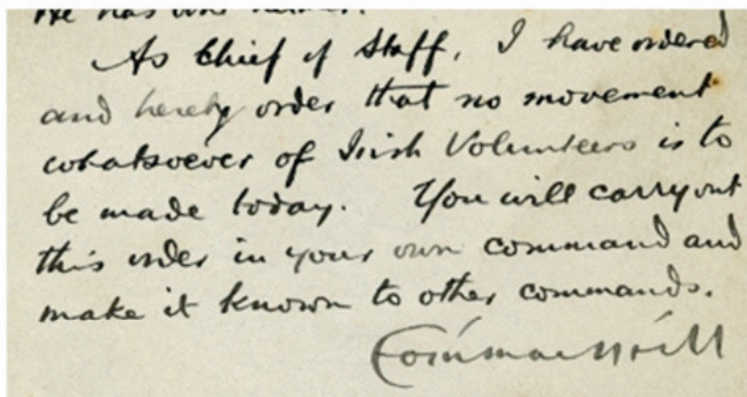 He has
As Chief of Staff, I have ordered
and hereby order that no movement
whatsoever of Irish Volunteers is to
be made today. You will carry out
this order in your own command and
make it known to other commands.
Eoin MacNeill